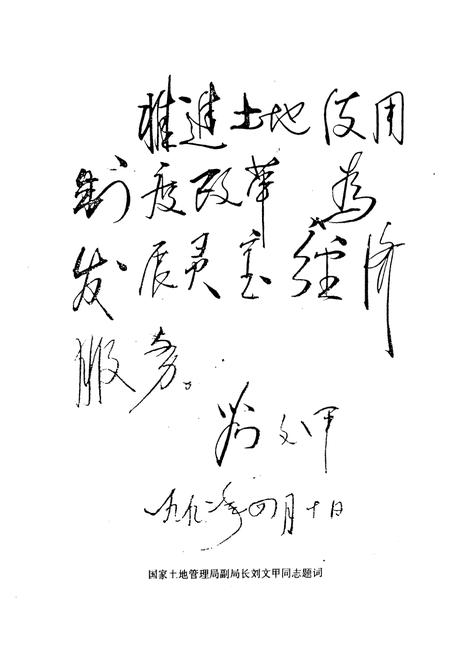 推进土地使用
制度改革 为
发展灵宝经济
服务。
刘文甲
一九九二年四月十日
国家土地管理局副局长刘文甲同志题词